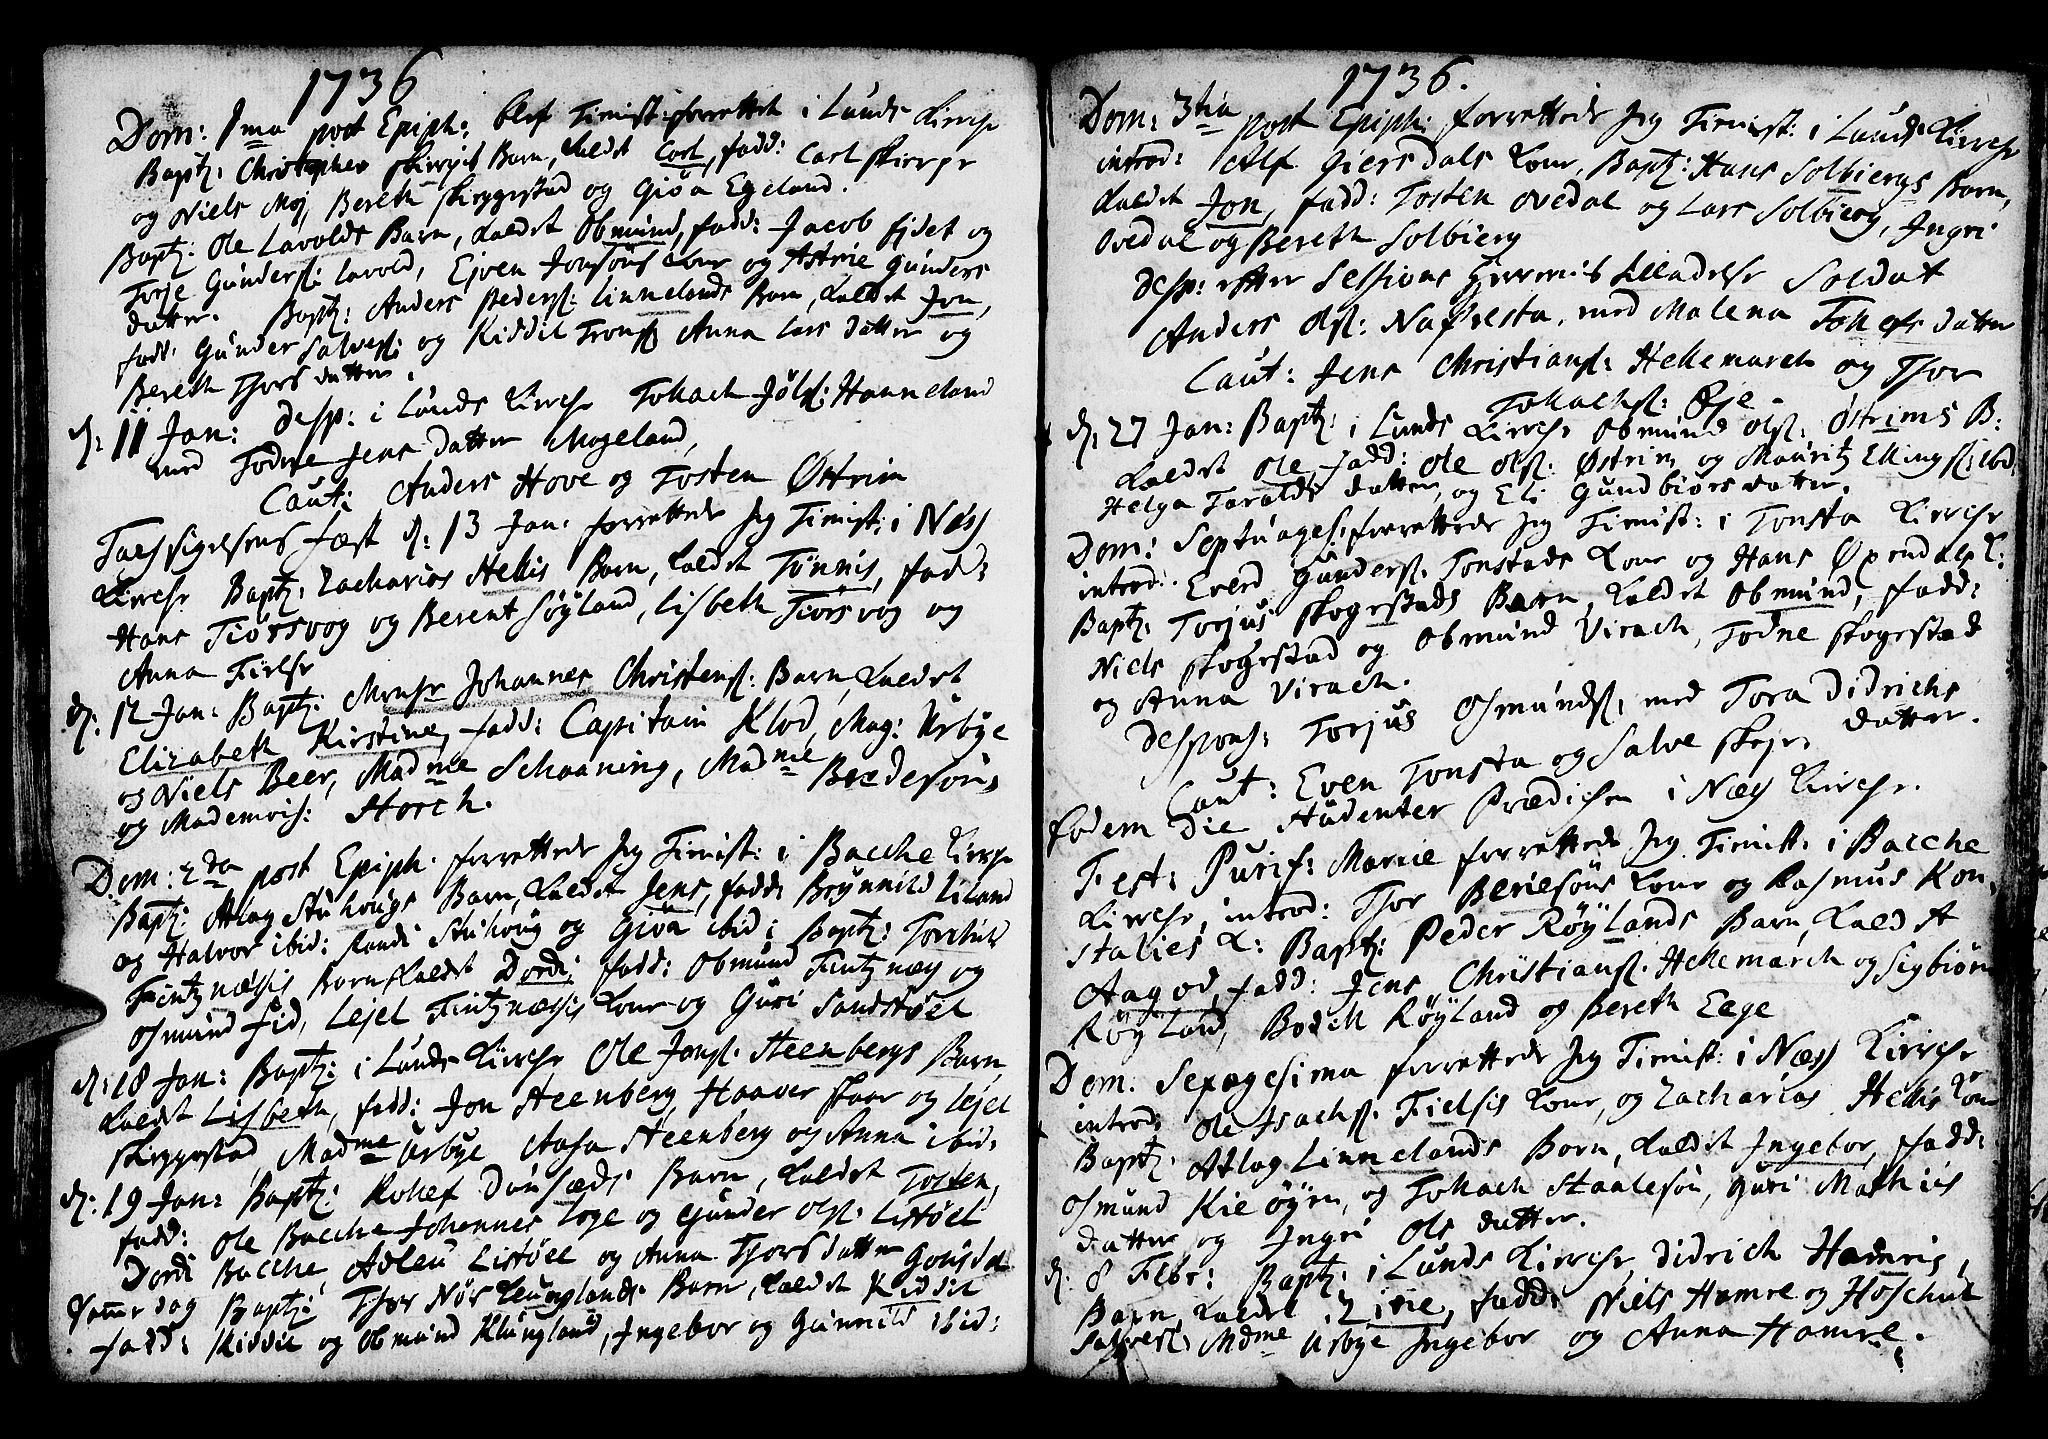 1736
Dom: 1ma post Epiph: blef Tienist: forrettet i Lunds Kirche
Bapt: Christopher Skirpis Barn, kaldet Carl, fadd: Carl Skierpe
og Niels Moj, Bereth Skeggestad og Giöa Egeland.
Bapt: Ole Lavolds Barn, kaldet Obmund, fadd: Jacob Fidet og
Torje Gunders: Lavold, Ejven Jonsöns Kone og Astrie Gunders
datter. Bapt: Anders Peders: Linnelands Barn, kaldet Jon,
fadd: Gunder Salves: og Kiddil Trons: Anna Lars datter og
Bereth Thors datter.
d: 11 Jan: desp: i Lunds Kirche Tollach Jöls: Hanneland
med Todne Jens datter Mogeland,
Caut: Anders Hove og Tosten Østrim
Tachsigelsens fæst d: 13 Jan: forrettede Jeg Tienist: i Næss
Kirche Bapt: Zacharias Hellis Barn, kaldet Tönnis, fadd:
Hans Tiörsvog og Berent Söyland, Lisbeth Tiorsvog og
Anna Fielse
d: 12 Jan: Bapt: Monsr Johannes Christens: Barn, kaldet
Elizabeth Kirstine, fadd: Capitain Klod, Mag: Urbye
og Niels Beer, Madme Schaaning, Madme Bredesön,
og Mademois: Storch.
Dom: 2da post Epiph: forrettede Jeg Tienist: i Bacche Kirche
Bapt: Atlag Stuhougs Barn, kaldet Jens, fadd: Brynnild Liland
og Halvor ibid: Randi Stuhoug og Giöa ibid: Bapt: Torchil
Fintznæssis Barn kaldet Dordi, fadd: Obmund Fintznæs og
Osmund Fid, Lejel Fintznæssis Kone og Guri Sandstöel
d: 18 Jan: Bapt: i Lunds Kirche Ole Jons: Steenbergs Barn,
kaldet Lisbeth, fadd: Jon Steenberg, Haaver Skaar og Lejel
Skeggestad, Madme Urbye Aasa Steenberg og Anna ibid:
d: 19 Jan: Bapt: Rollef Dunsæds Barn, kaldet Tosten,
fadd: Ole Bacche Johannes Loge og Gunder Ols: Listöel
Dordi Bacche, Adleu Listöel og Anna Thors datter Gousdal
Samme dag Bapt: Thor Nör Klunglands Barn, kaldet Kiddil
fadd: Kiddil og Obmund Klungland, Ingebor og Gunnild ibid:
1736.
Dom: 3tia post Epiph: forrettede Jeg Tienist: i Lunds Kirche
introd: Alf Giersdals Kone, Bapt: Hans Solbiergs Barn,
kaldet Jon, fadd: Tosten Ovedal og Lars Solbierg, Ingri
Ovedal og Bereth Solbierg
desp: efter Sessions Herrernis tilladelse Soldat
Anders Ols: Nafvesta, med Malena Tollefs datter
Caut: Jens Christians: Hellemarch og Thor
Tollachs: Øje
d: 27 Jan: Bapt: i Lunds Kirche Obmund Ols: Østrims B:
kaldet Ole fadd: Ole Ols: Østrim og Mauritz Ellings: ibid
Helga Taralds datter, og Eli Gundbiörs datter.
Dom: Septuages: forrettede Jeg Tienist: i Tonsta Kirche
introd: Everd Gunders: Tonstads Kone og Hans Øxendals K:
Bapt: Torjus Skogestads Barn, kaldet Obmund, fadd:
Niels Skogestad og Obmund Virach, Todne Skogestad
og Anna Virach.
despons: Torjus Osmunds: med Tora Didrichs
datter.
Caut: Even Tonsta og Salve Skeje
Eodem Die Studenter Prædichen i Næss Kirche.
Fest: Purif: Mariæ forrettede Jeg Tienist: i Bacche
Kirche, introd: Thor Beriesöns Kone og Rasmus Kon-
stalies K: Bapt: Peder Röylands Barn, kaldet
Aagod, fadd: Jens Christians: Hellemarch og Sigbiörn
Röyland, Bodil Röyland og Bereth Eege
Dom: Sexagesima forrettede Jeg Tienist: i Næss Kirche
introd: Ole Isachs: Fielsis Kone, og Zacharias Hellis Kone
Bapt: Atlag Linnelands Barn, kaldet Ingebor, fadd:
Osmund Kieöyen, og Tollach Staalesön, Guri Mathias
datter og Ingri Ols datter.
d: 8 Febr: Bapt: i Lunds Kirche Didrich Hamris,
Barn, kaldet Zirie, fadd: Niels Hamre og Hoschul
Salves: Mdme Urbye Ingebor og Anna Hamre.